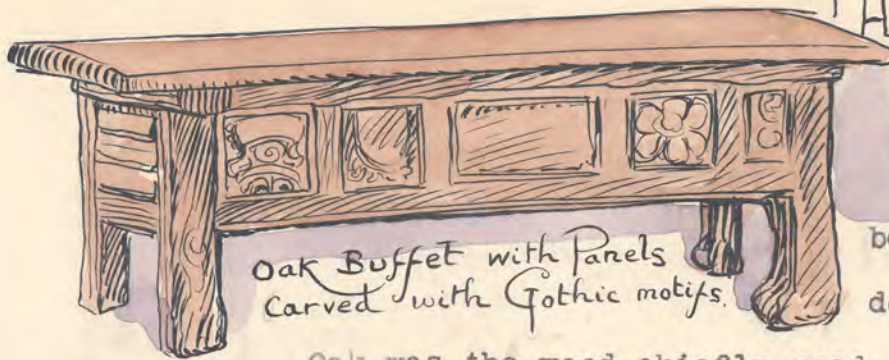 Oak Buffet with Panels
Carved with Gothic motifs.